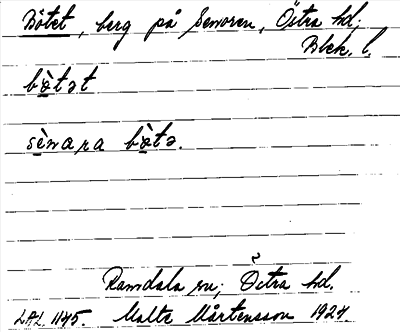 Bötet, berg på Senoren, Östra hd;
Blek. l.
bö̀tət
sènara bö̀tə.
Ramdala sn; Östra hd.
LAL 1145. Malte Mårtensson 1927